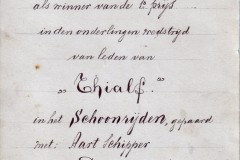 als winner van de 1e prijs
in den onderlingen wedstrijd
van leden van
„Thialf."
in het Schoonrijden, gepaard
met: Aart Schipper